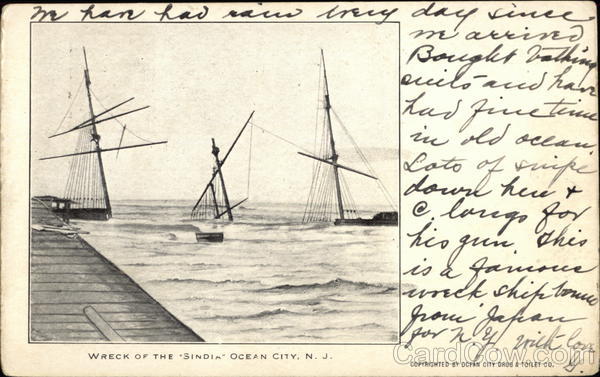 We have had rain every day since
we arrived
Bought bathing
suits and have
had fine time
in old ocean.
Lots of snipe
down here +
C. longs for
his gun. This
is a famous
wreck ship bound
from Japan
for N.Y. with love
WRECK OF THE "SINDIA" OCEAN CITY, N. J.
COPYRIGHTED BY OCEAN CITY DRUG & TOILET CO.
CardCow.com